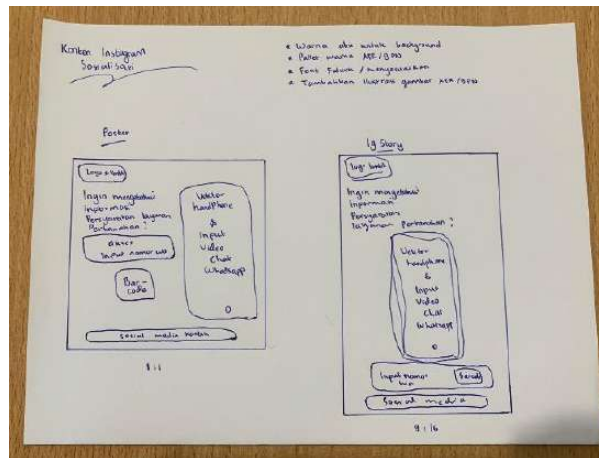 Konten Instagram
Sosialisasi
* Warna abu untuk background
* Pallet warna ATR/BPN
* Font Futura / menyesuaikan
* Tambahkan ilustrasi gambar ATR/BPN
Poster
Ingin mengetahui
Informasi
Persyaratan layanan
Pertanahan?
input nomor wa
Bar-
code
Vektor
handphone
&
Input
Video
Chat
Whatsapp
Sosial media kantah
1:1
Ig Story
Ingin mengetahui
Informasi
Persyaratan
layanan Pertanahan?
Vektor
handphone
&
Input
Video
Chat
Whatsapp
Input nomor
wa
Sosial media
9:16